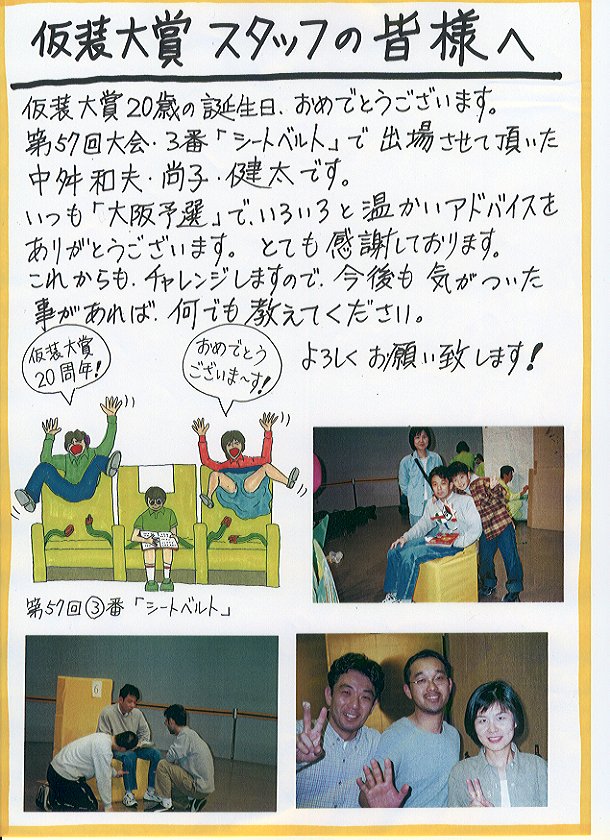 仮装大賞 スタッフの皆様へ
仮装大賞20歳の誕生日、おめでとうございます。
第57回大会・3番「シートベルト」で出場させて頂いた
中舛和夫・尚子・健太です。
いつも「大阪予選」で、いろいろと温かいアドバイスを
ありがとうございます。とても感謝しております。
これからも、チャレンジしますので、今後も気がついた
事があれば、何でも教えてください。
よろしくお願い致します!
仮装大賞
20周年!
おめでとう
ございま〜す!
第57回③番「シートベルト」
6